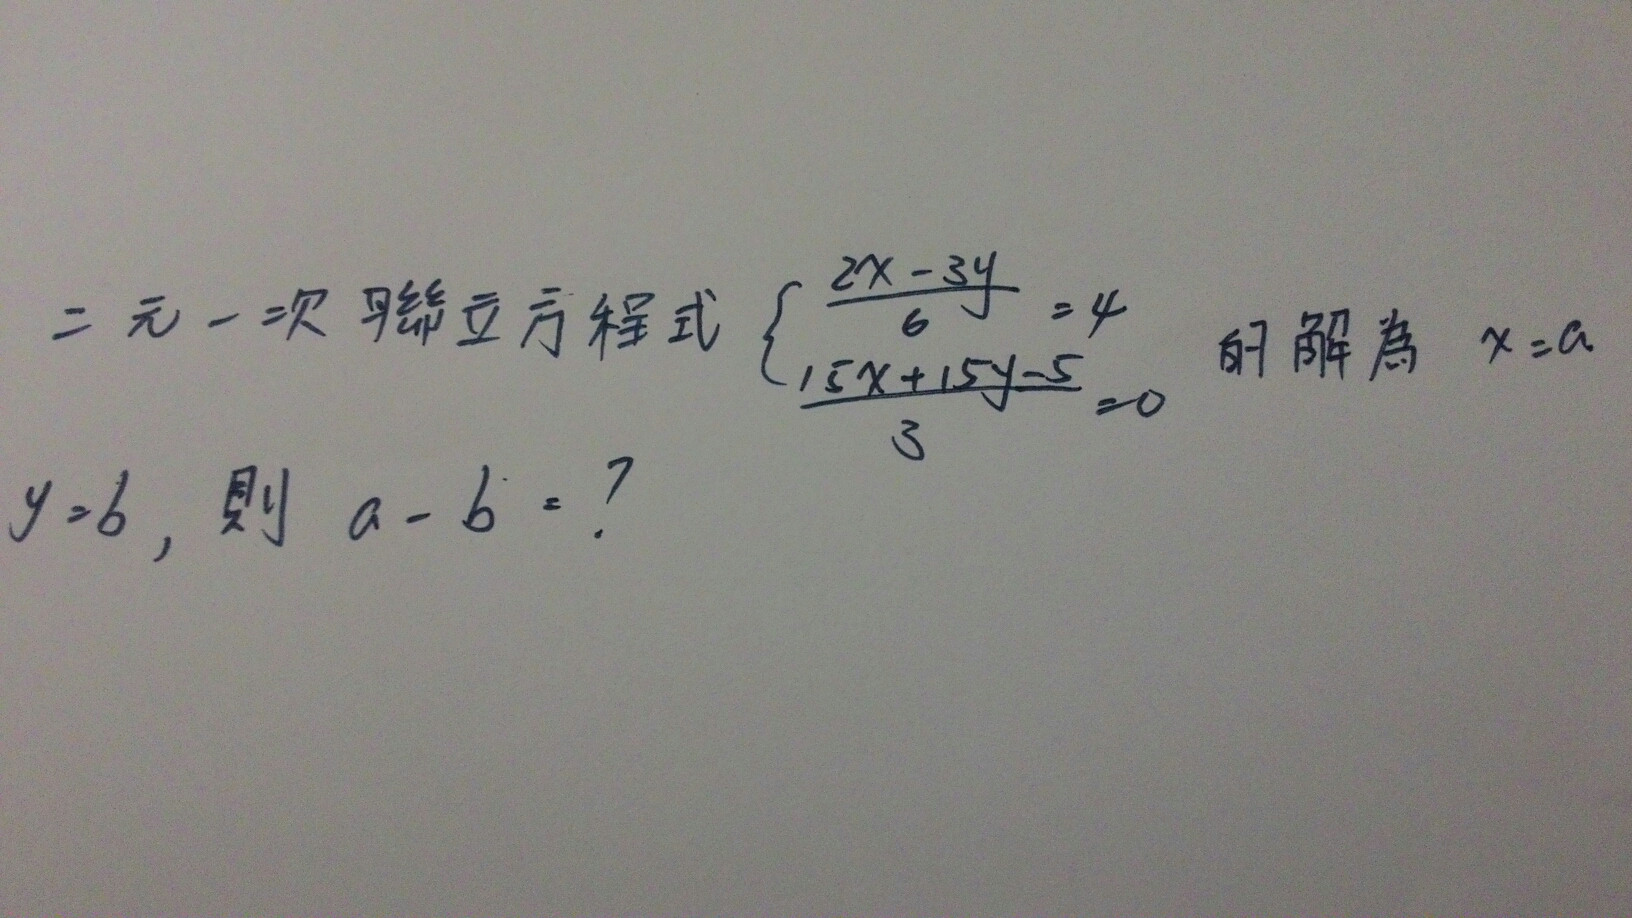 二元一次聯立方程式 { (2x-3y)/6 = 4, (15x+15y-5)/3 = 0 的解為 x=a
y=b, 則 a-b=?